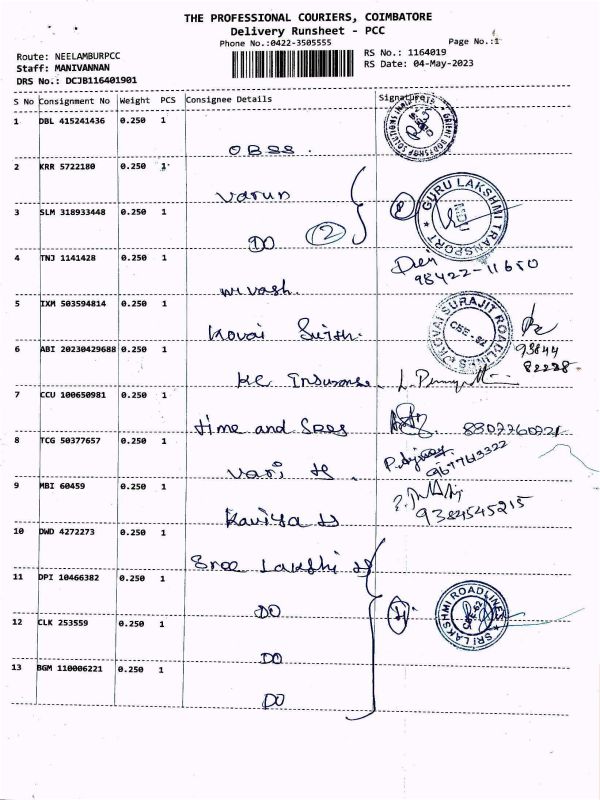 THE PROFESSIONAL COURIERS, COIMBATORE
Delivery Runsheet - PCC
Phone No.:0422-3505555
Page No.:1
Route: NEELAMBURPCC
RS No.: 1164019
Staff: MANIVANNAN
RS Date: 04-May-2023
DRS No.: DCJB116401901
S No Consignment No Weight PCS Consignee Details Signature
1 DBL 415241436 0.250 1
OBSS.
2 KRR 5722180 0.250 1
Varun
GURU LAKSHMI TRANSPORT
3 SLM 318933448 0.250 1
DO 2
4 TNJ 1141428 0.250 1
98422-11650
5 IXM 503594814 0.250 1
Kovai
KOVAI SURAJIT ROADLINES
CBE-62
6 ABI 20230429688 0.250 1
93844
82228
KC
7 CCU 100650981 0.250 1
time and
8 TCG 50377657 0.250 1
9677613322
9 MBI 60459 0.250 1
Kaviya
9384545215
10 DWD 4272273 0.250 1
Sree
11 DPI 10466382 0.250 1
DO
SRI LAKSHMI ROADLINES
CBE-62
12 CLK 253559 0.250 1
DO
13 BGM 110006221 0.250 1
DO